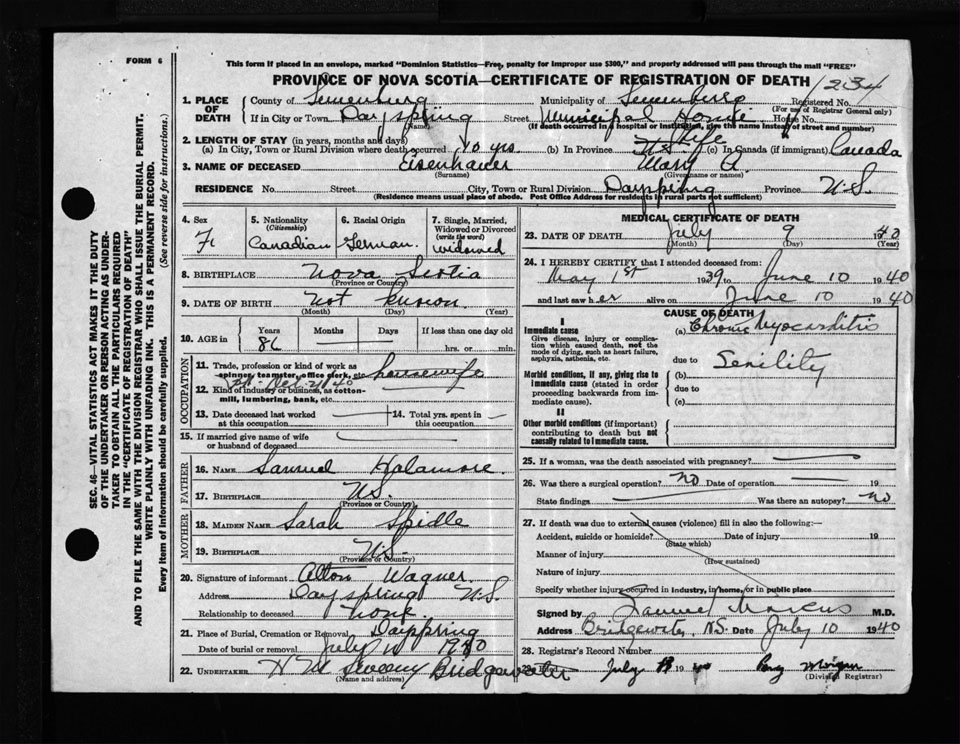 FORM 6
This form if placed in an envelope, marked "Dominion Statistics—Free, penalty for improper use $300," and properly addressed will pass through the mail "FREE"
PROVINCE OF NOVA SCOTIA—CERTIFICATE OF REGISTRATION OF DEATH
1234
Registered No.
(For use of Registrar General only)
1. PLACE OF DEATH
County of Lunenburg Municipality of Lunenburg
If in City or Town Dayspring Street Municipal Home House No.
(Name) (If death occurred in a hospital or institution, give the name instead of street and number)
2. LENGTH OF STAY (in years, months and days) Life
(a) In City, Town or Rural Division where death occurred 10 yrs. (b) In Province N.S. (c) In Canada (if immigrant) Canada
3. NAME OF DECEASED Eisenhauer Mary A.
(Surname) (Given name or names)
RESIDENCE No. Street City, Town or Rural Division Dayspring Province N.S.
(Residence means usual place of abode. Post Office Address for residents in rural parts not sufficient)
4. Sex F.
5. Nationality (Citizenship) Canadian
6. Racial Origin German
7. Single, Married, Widowed or Divorced (write the word) widowed
8. BIRTHPLACE Nova Scotia
(Province or Country)
9. DATE OF BIRTH Not known
(Month) (Day) (Year)
10. AGE in Years 86 Months Days If less than one day old
hrs. or min.
OCCUPATION
11. Trade, profession or kind of work as spinner, teamster, office clerk, etc. housewife
12. Kind of industry or business, as cotton-mill, lumbering, bank, etc.
13. Date deceased last worked at this occupation
14. Total yrs. spent in this occupation
15. If married give name of wife or husband of deceased
FATHER
16. NAME Samuel
17. BIRTHPLACE N.S.
(Province or Country)
MOTHER
18. MAIDEN NAME Sarah Spidle
19. BIRTHPLACE N.S.
(Province or Country)
20. Signature of informant Alton Wagner
Address Dayspring N.S.
Relationship to deceased none.
21. Place of Burial, Cremation or Removal Dayspring
Date of burial or removal July 1940
22. UNDERTAKER Sweeny Bridgewater
(Name and address)
MEDICAL CERTIFICATE OF DEATH
23. DATE OF DEATH July 9 1940
(Month) (Day) (Year)
24. I HEREBY CERTIFY that I attended deceased from:
May 1st 1939 to June 10 1940
and last saw her alive on June 10 1940
CAUSE OF DEATH
I
Immediate cause (a) Chronic Myocarditis
Give disease, injury or complication which caused death, not the mode of dying, such as heart failure, asphyxia, asthenia, etc.
due to Senility
Morbid conditions, if any, giving rise to immediate cause (stated in order proceeding backwards from immediate cause).
(b)
due to
(c)
II
Other morbid conditions (if important) contributing to death but not causally related to immediate cause.
25. If a woman, was the death associated with pregnancy?
26. Was there a surgical operation? no Date of operation 19
State findings Was there an autopsy? no
27. If death was due to external causes (violence) fill in also the following:—
Accident, suicide or homicide? Date of injury 19
(State which)
Manner of injury
(How sustained)
Nature of injury
Specify whether injury occurred in industry, in home, or in public place
Signed by Marcus M.D.
Address Bridgewater, N.S. Date July 10 1940
28. Registrar's Record Number
29. Filed July 1940
(Division Registrar)
SEC. 46—VITAL STATISTICS ACT MAKES IT THE DUTY OF THE UNDERTAKER OR PERSON ACTING AS UNDERTAKER TO OBTAIN ALL THE PARTICULARS REQUIRED IN THE "CERTIFICATE OF REGISTRATION OF DEATH" AND TO FILE THE SAME WITH THE DIVISION REGISTRAR WHO SHALL ISSUE THE BURIAL PERMIT.
WRITE PLAINLY WITH UNFADING INK. THIS IS A PERMANENT RECORD.
Every item of information should be carefully supplied. (See reverse side for instructions.)